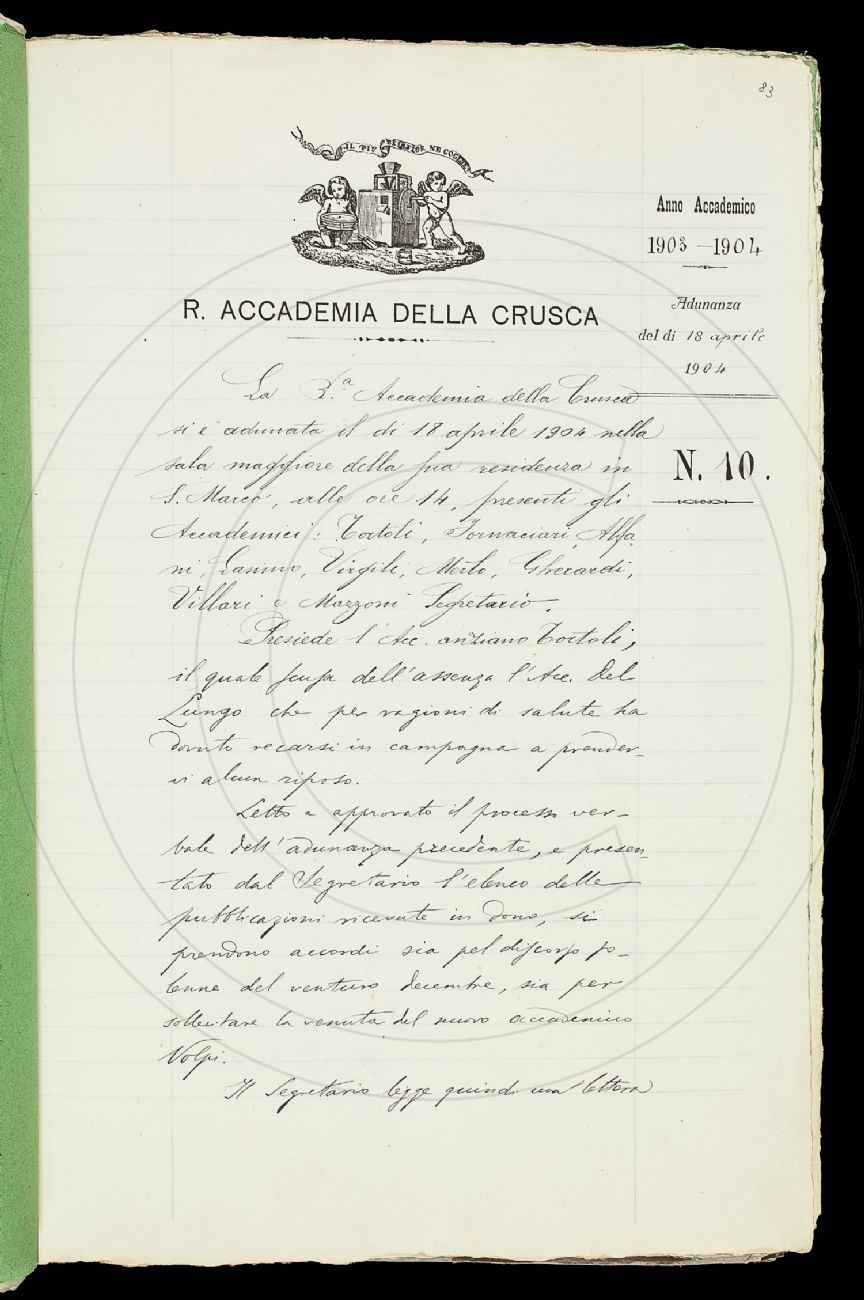 83
IL PIÙ BEL FIOR NE COGLIE
Anno Accademico
1903 - 1904
R. ACCADEMIA DELLA CRUSCA
Adunanza
del dì 18 aprile
1904
N. 10.
La R.ª Accademia della Crusca
si è adunata il dì 18 aprile 1904 nella
sala maggiore della sua residenza in
S. Marco, alle ore 14, presenti gli
Accademici: Tortoli, Fornaciari, Alfa
ni, Virgili, Merlo, Gherardi,
Villari e Mazzoni Segretario.
Presiede l'Acc. anziano Tortoli,
il quale scusa dell'assenza l'Acc. Del
Lungo che per ragioni di salute ha
dovuto recarsi in campagna a prender-
vi alcun riposo.
Letto e approvato il processo ver-
bale dell'adunanza precedente, e presen-
tato dal Segretario l'elenco delle
pubblicazioni ricevute in dono, si
prendono accordi sia pel discorso so-
lenne del venturo decembre, sia per
sollecitare la venuta del nuovo accademico
Volpi.
Il Segretario legge quindi una lettera